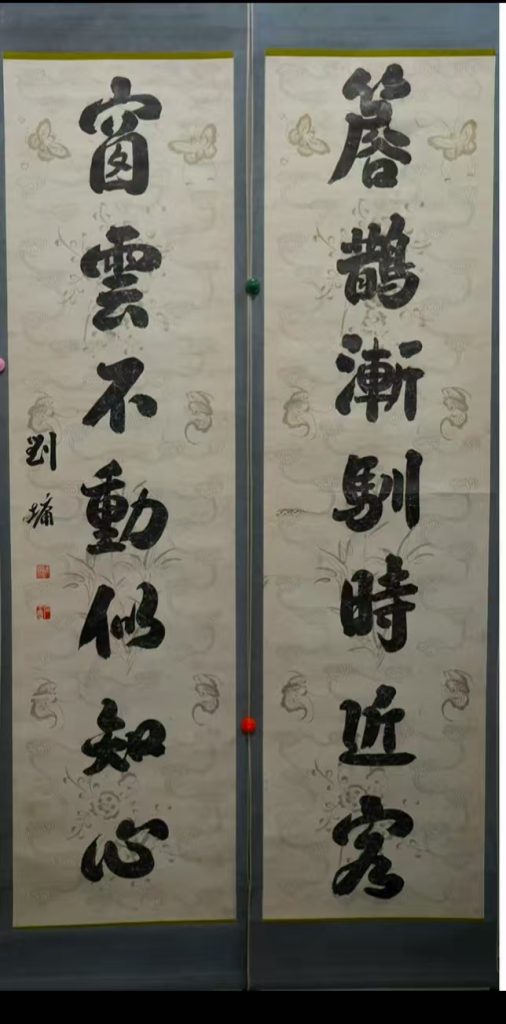 簷鵲漸馴時近客
窗雲不動似知心
劉墉